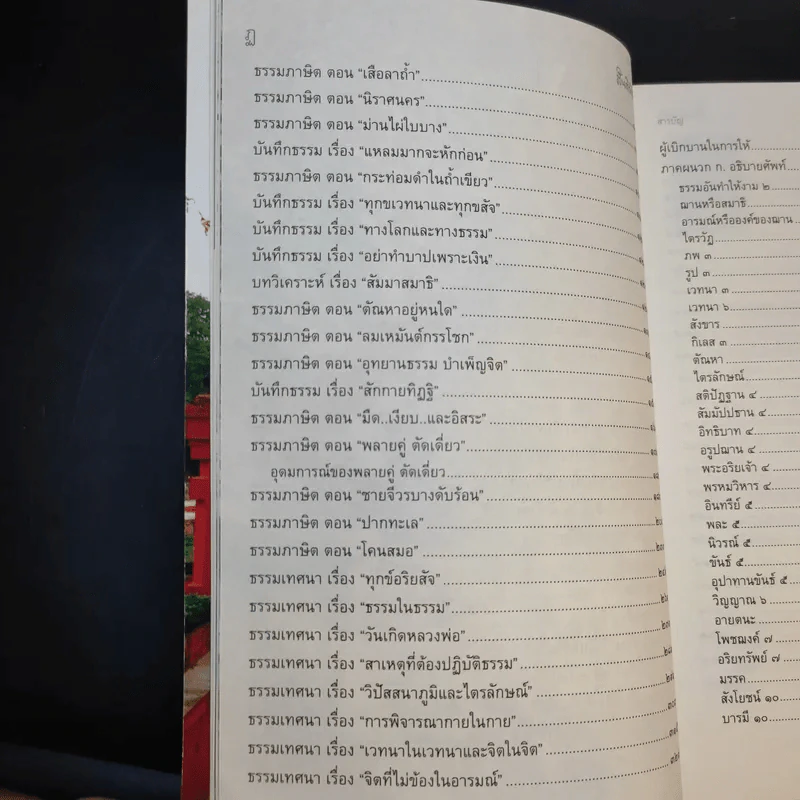 ฏ
ธรรมภาษิต ตอน “เสือลาถ้ำ”
ธรรมภาษิต ตอน “นิราศนคร”
ธรรมภาษิต ตอน “ม่านไผ่ใบบาง”
บันทึกธรรม เรื่อง “แหลมมากจะหักก่อน”
ธรรมภาษิต ตอน “กระท่อมดำในถ้ำเขียว”
บันทึกธรรม เรื่อง “ทุกขเวทนาและทุกขสัจ”
บันทึกธรรม เรื่อง “ทางโลกและทางธรรม”
บันทึกธรรม เรื่อง “อย่าทำบาปเพราะเงิน”
บทวิเคราะห์ เรื่อง “สัมมาสมาธิ”
ธรรมภาษิต ตอน “ตัณหาอยู่หนใด”
ธรรมภาษิต ตอน “ลมเหมันต์กรรโชก”
ธรรมภาษิต ตอน “อุทยานธรรม บำเพ็ญจิต”
บันทึกธรรม เรื่อง “สักกายทิฏฐิ”
ธรรมภาษิต ตอน “มืด..เงียบ..และอิสระ”
ธรรมภาษิต ตอน “พลายคู่ ตัดเดี่ยว”
อุดมการณ์ของพลายคู่ ตัดเดี่ยว
ธรรมภาษิต ตอน “ชายจีวรบางดับร้อน”
ธรรมภาษิต ตอน “ปากทะเล”
ธรรมภาษิต ตอน “โคนสมอ”
ธรรมเทศนา เรื่อง “ทุกข์อริยสัจ”
ธรรมเทศนา เรื่อง “ธรรมในธรรม”
ธรรมเทศนา เรื่อง “วันเกิดหลวงพ่อ”
ธรรมเทศนา เรื่อง “สาเหตุที่ต้องปฏิบัติธรรม”
ธรรมเทศนา เรื่อง “วิปัสสนาภูมิและไตรลักษณ์”
ธรรมเทศนา เรื่อง “การพิจารณากายในกาย”
ธรรมเทศนา เรื่อง “เวทนาในเวทนาและจิตในจิต”
ธรรมเทศนา เรื่อง “จิตที่ไม่ข้องในอารมณ์”
สารบัญ
ผู้เบิกบานในการให้
ภาคผนวก ก. อธิบายศัพท์
ธรรมอันทำให้งาม ๒
ฌานหรือสมาธิ
อารมณ์หรือองค์ของฌาน
ไตรวัฏ
ภพ ๓
รูป ๓
เวทนา ๓
เวทนา ๖
สังขาร
กิเลส ๓
ตัณหา
ไตรลักษณ์
สติปัฏฐาน ๔
สัมมัปปธาน ๔
อิทธิบาท ๔
อรูปฌาน ๔
พระอริยเจ้า ๔
พรหมวิหาร ๔
อินทรีย์ ๕
พละ ๕
นิวรณ์ ๕
ขันธ์ ๕
อุปาทานขันธ์ ๕
วิญญาณ ๖
อายตนะ
โพชฌงค์ ๗
อริยทรัพย์ ๗
มรรค
สังโยชน์ ๑๐
บารมี ๑๐